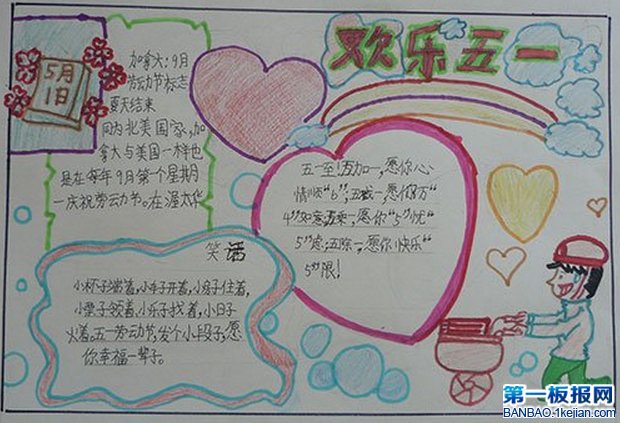 欢乐五一
5月
1日
加拿大：9月
劳动节标志
夏天结束
同为北美国家，加
拿大与美国一样也
是在每年9月第一个星期月
一庆祝劳动节。在渥太华
五一至！五加一，愿你心
情顺“6”；五减一，愿你万“
4”如意；五乘一，愿你“5”忧“
5”虑；五除一，愿你快乐“
5”限！
笑话
小杯子端着，小车子开着，小房子住着，
小票子领着，小乐子找着，小日子
火着。五一劳动节，发个小段子，愿
你幸福一辈子。
第一板报网
BANBAO·1kejian.com